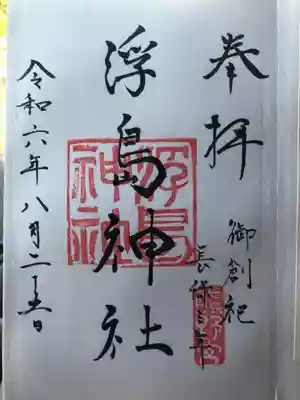 奉拝
御創祀
長保三年
浮島神社
浮島神社
令和六年八月二十五日